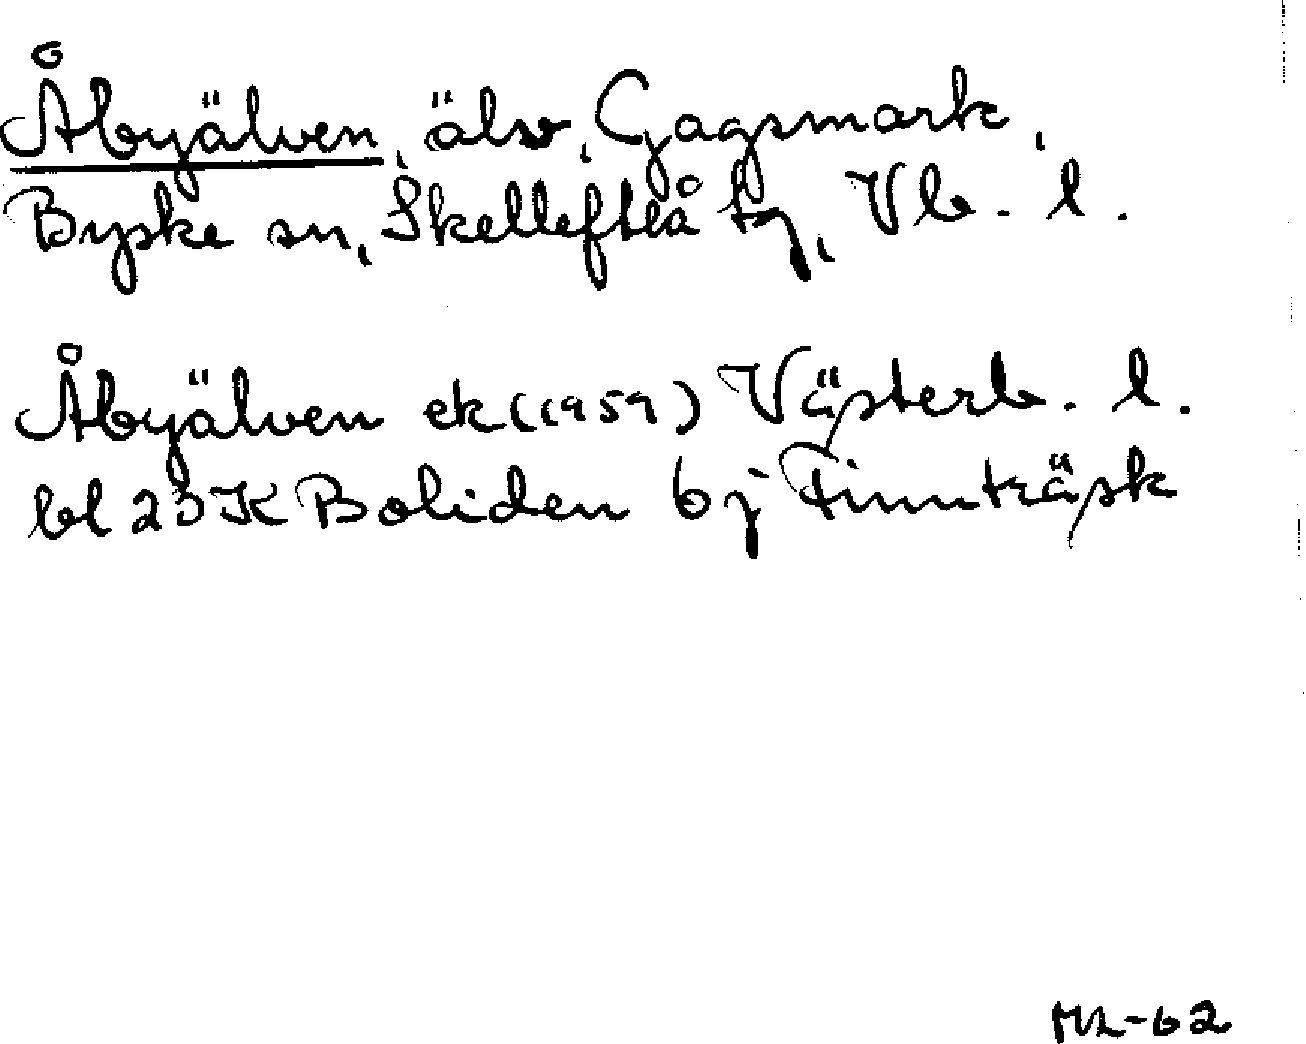 Åbyälven, älv, Gagsmark,
Byske sn, Skellefteå tg, Vb. l.
Åbyälven ek (1959) Västerb. l.
bl 23K Boliden 6j Finnträsk
ML-62